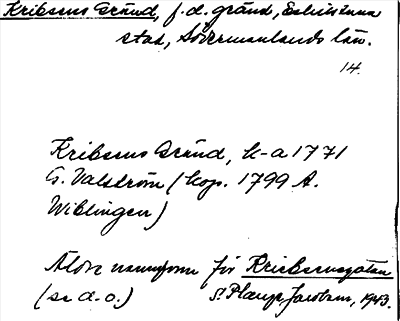 Kribsens Gränd, f.d. gränd, Eskilstuna
stad, Södermanlands län.
14.
Kribsens Gränd, k-a 1771
G. Valström (kop. 1799 A.
Wiblingen)
Äldre namnform för Kriebsensgatan
(se d.o.) S. Plange Jacobson, 1943.